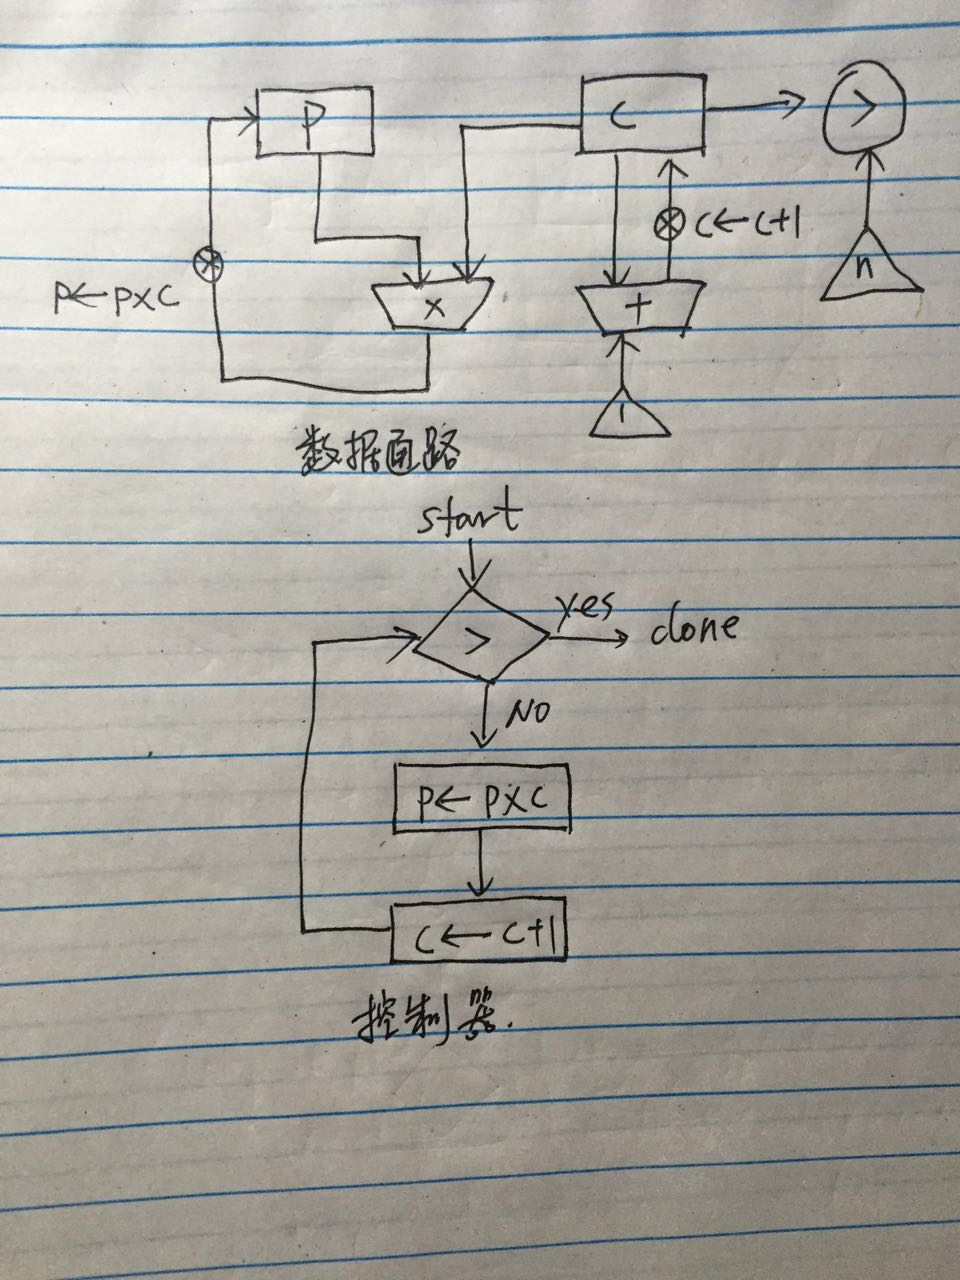 P C >
c←c+1
n
p←pxc
x +
1
数据通路
start
> yes done
NO
p←pxc
c←c+1
控制器.